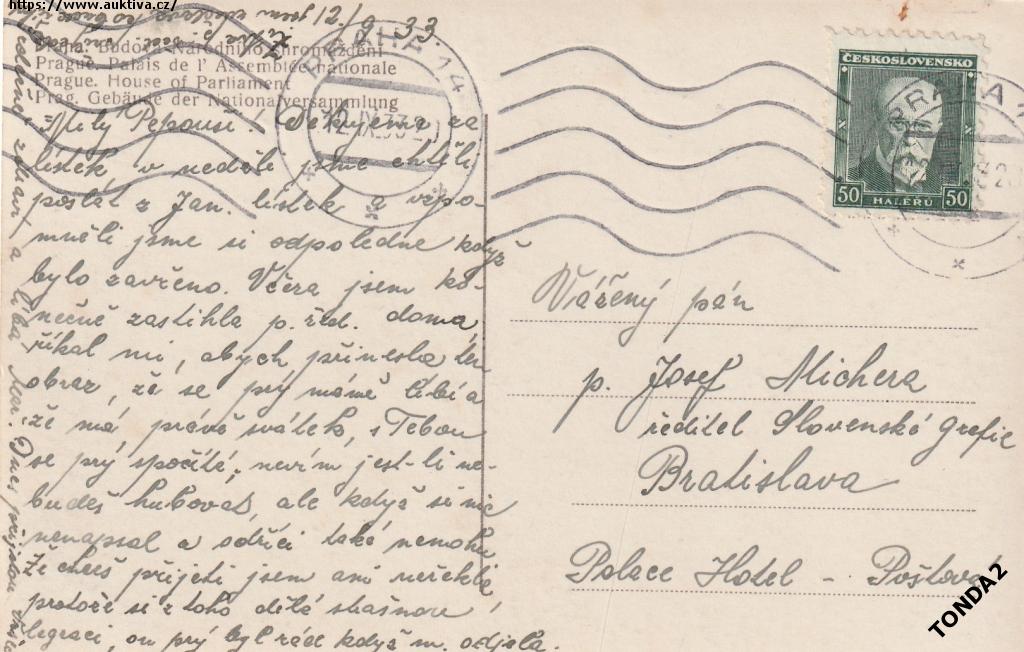 https://www.auktiva.cz/
12./9. 33.
Praha. Budova Národního shromáždění
Prague. Palais de l'Assemblée nationale
Prague. House of Parliament
Prag. Gebäude der Nationalversammlung
PRAHA 14
ČESKOSLOVENSKO
50 HALÉŘŮ 50
Milý Pepouši! Děkujeme za
lístek v neděli jsme chtěli
poslat z Jan. lístek a vzpo-
mněli jsme si odpoledne když
bylo zavřeno. Včera jsem ko-
nečně zastihla p. řed. doma,
říkal mi, abych přinesla ten
obraz, že se prý mámě líbí a
že má, právě svátek, s Tebou
se prý spočítá, nevím jest-li ne-
budeš hubovat, ale když si nic
nenapsal a odříci také nemohu
Že chceš přijeti jsem ani neřekla
protože si z toho dělá strašnou
legraci, on prý byl rád když m. odjela.
Vážený pán
p. Josef Michera
ředitel Slovenské Grafie
Bratislava
Palace Hotel - Poštová
TONDA2